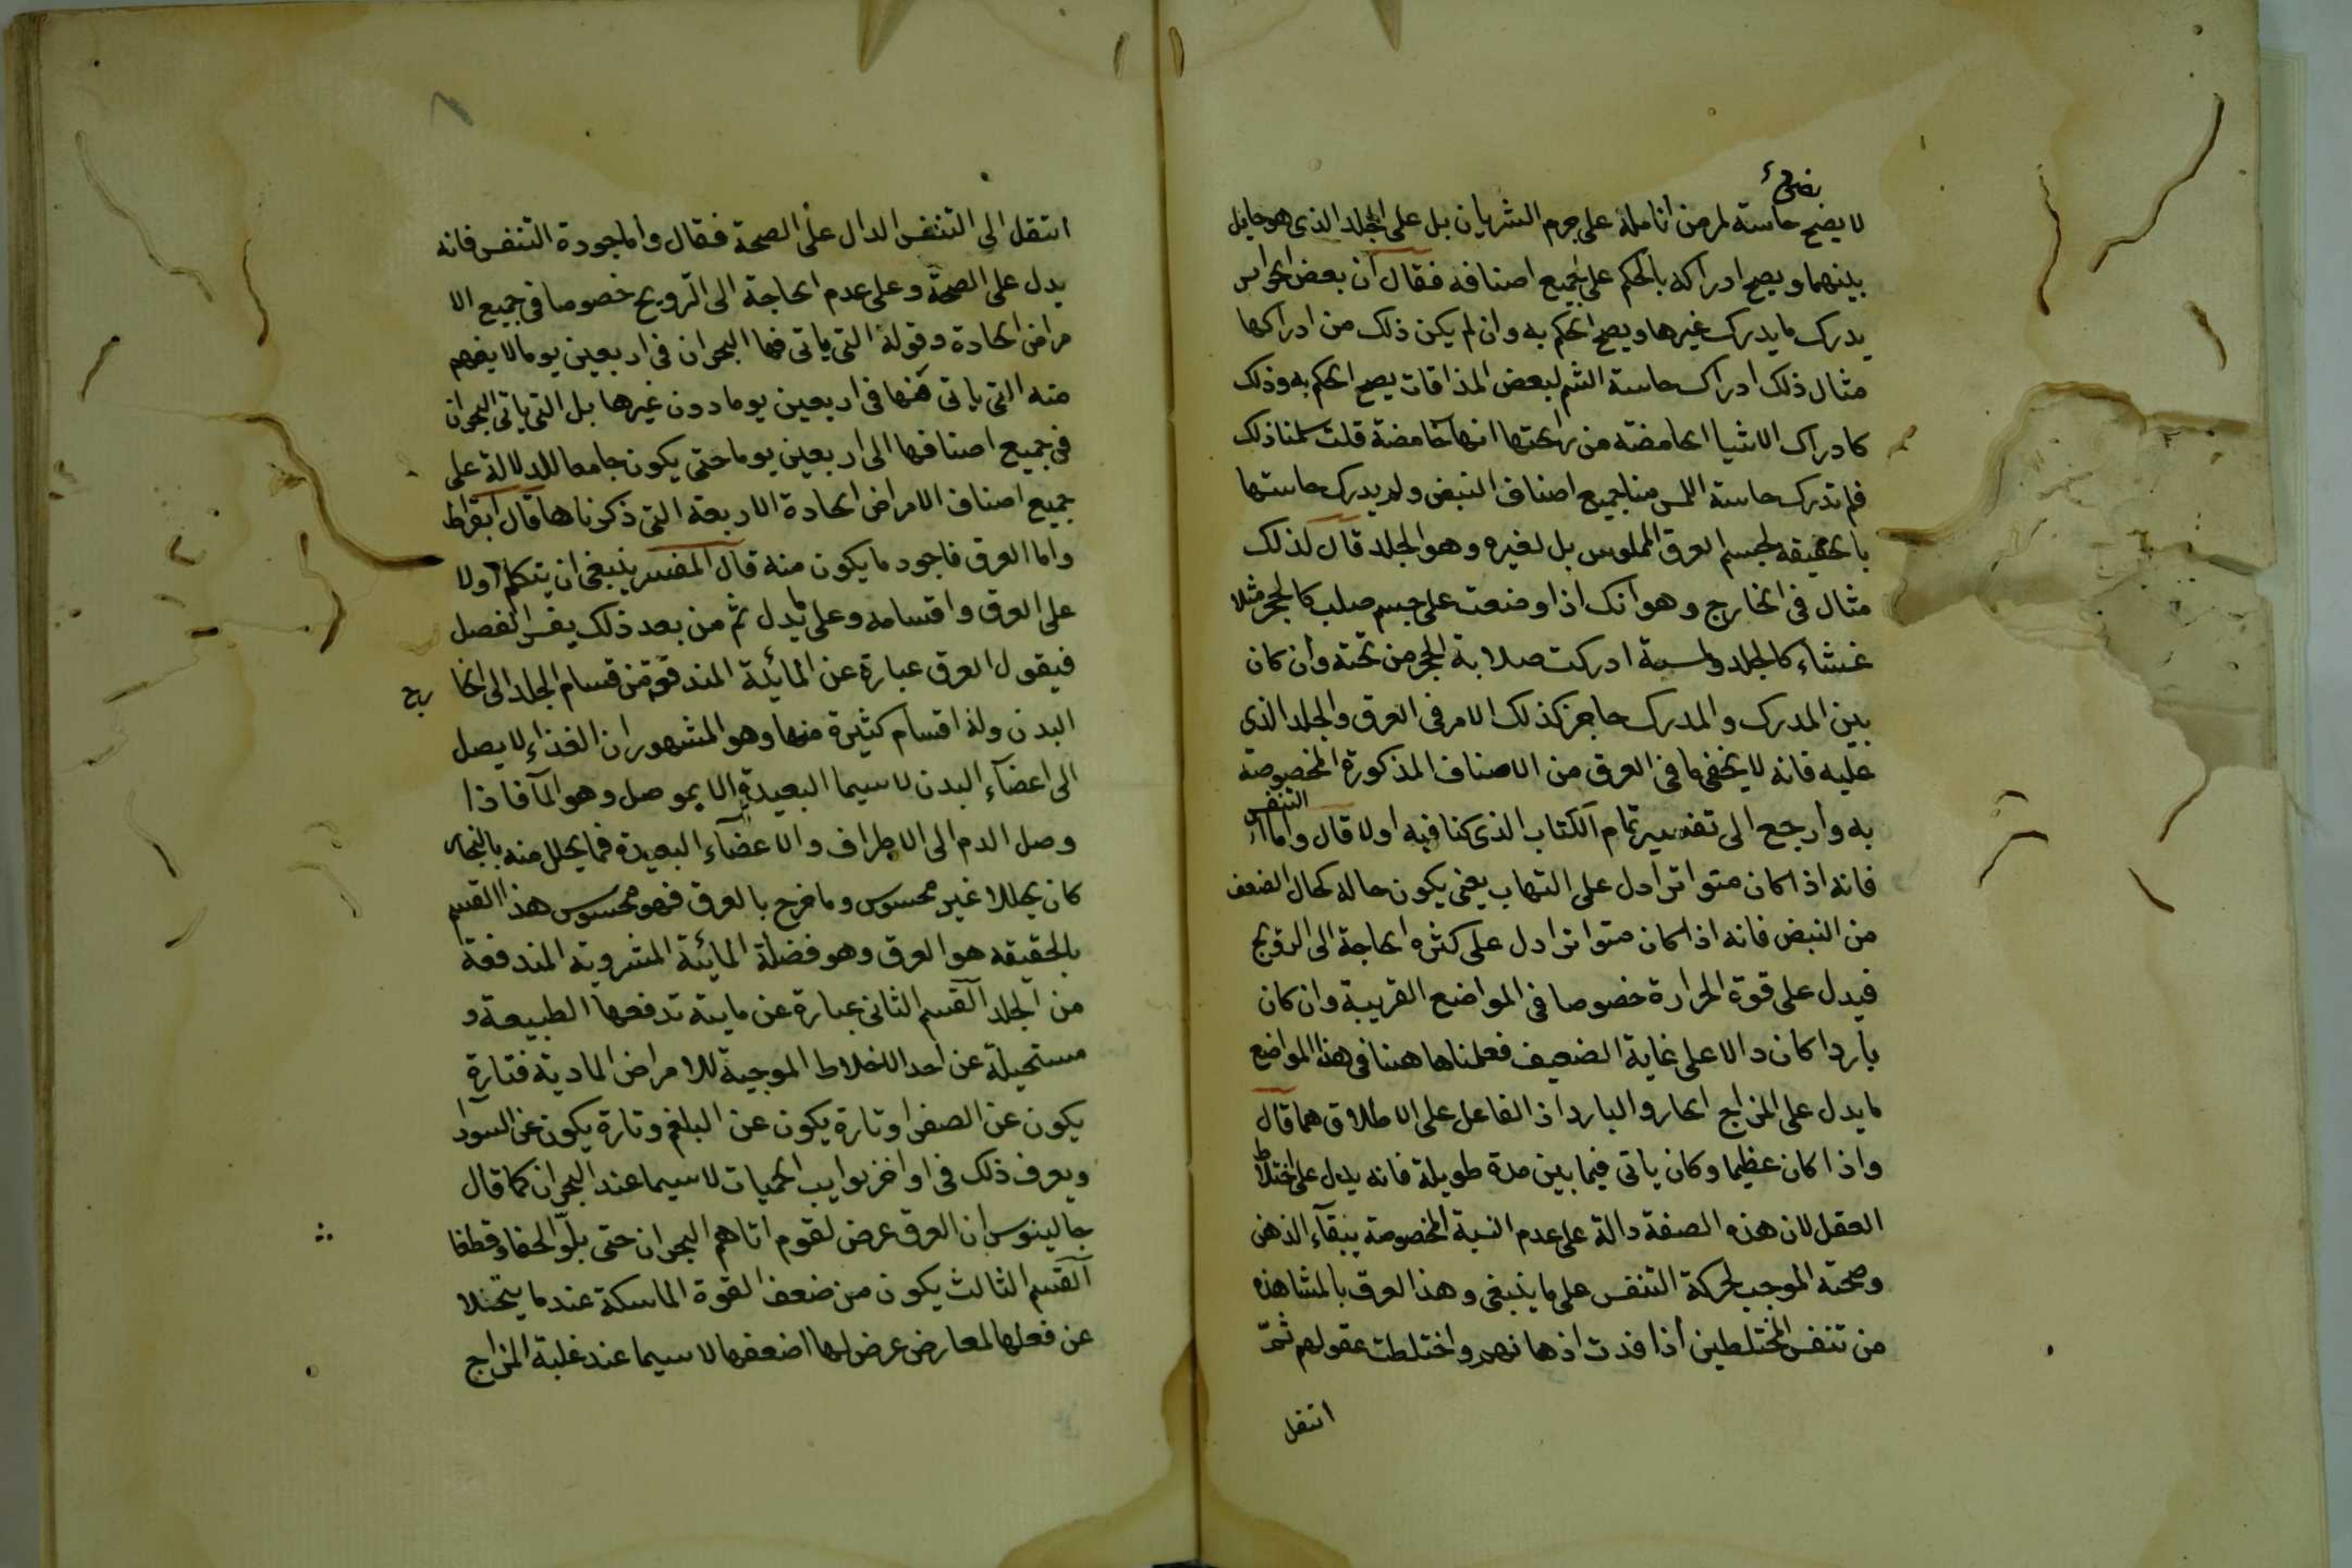 نضى
لا يضح حاسة لمرض انامله على جرم الشريان بل على الجلد الذى هو حايل
بينهما ويصح ادراكه بالحكم على جميع اصنافه فقال ان بعض الحواس
يدرك ما يدرك غيرها ويصح الحكم به وان لم يكن ذلك من ادراكها
مثال ذلك ادراك حاسة الشم لبعض المذاقات يصح الحكم به وذلك
كادراك الاشيا الحامضة من رائحتها انها حامضة قلت سلمنا ذلك
فلم تدرك حاسة اللمس منا جميع اصناف النبض ولم يدرك حاستها
بالحقيقه لجسم العرق الملموس بل لغيره وهو الجلد قال لذلك
مثال فى الخارج وهو انك اذا وضعت على جسم صلب كالحجر مثلا
غشاء كالجلد ولمسته ادركت صلابة الحجر من تحته وان كان
بين المدرك والمدرك حاجز كذلك الامر فى العرق والجلد الذى
عليه فانه لا يخفى ما فى العرق من الاصناف المذكورة المخصوصة
به وارجع الى تفسير تمام الكتاب الذى كنا فيه اولا قال واما التنفس
فانه اذا كان متواترا دل على التهاب يعنى يكون حاله كحال الضعف
من النبض فانه اذا كان متواترا دل على كثره الحاجة الى الترويح
فيدل على قوة الحرارة خصوصا فى المواضع القريبة وان كان
باردا كان دالا على غاية الضعيف فعلمنا هاهنا فى هذا المواضع
ما يدل على المزاج الحار والبارد اذ الفاعل على الاطلاق هما قال
واذا كان عظيما وكان ياتى فيما بين مدة طويلة فانه يدل على اختلاط
العقل لان هذه الصفة دالة على عدم النسبة المخصوصة ببقآء الذهن
وصحته الموجب لحركة التنفس على ما ينبغى وهذا العرق بالمشاهده
من تنفس المختلطين اذا فدت اذهانهم واختلطت عقولهم ثمّ
انتقل
انتقل الى التنفس الدال على الصحة فقال واما جودة التنفس فانه
يدل على الصحة وعلى عدم الحاجة الى الترويح خصوصا فى جميع الا
مراض الحادة وقوله التى ياتى فيها البحران فى اربعين يوما لا يفهم
منه التى ياتى منها فى اربعين يوما دون غيرها بل التى ياتى البحران
فى جميع اصنافها الى اربعين يوما حتى يكون جامعا للدلالة على
جميع اصناف الامراض الحادة الاربعة التى ذكرناها قال ابقراط
واما العرق فاجود ما يكون منه قال المفسر ينبغى ان يتكلم اولا
على العرق واقسامه وعلى ما يدل ثم من بعد ذلك يفسر الفصل
فيقول العرق عبارة عن المائية المندفقة من قسام الجلد الى الخا رج
البدن وله اقسام كثيرة منها وهو المشهور ان الغذاء لا يصل
الى اعضآء البدن لا سيما البعيدة الا بموصل وهو المآ فاذا
وصل الدم الى الاطراف والاعضآء البعيدة فما يحلل منه بالبخار
كان تحللا غير محسوس وما خرج بالعرق فهو محسوس هذا القسم
بالحقيقه هو العرق وهو فضلة المائية المشروبة المندفعة
من الجلد القسم الثانى عبارة عن مايئة تدفعها الطبيعة و
مستحيلة عن احد الاخلاط الموجبة للامراض المادية فتارة
يكون عن الصفرا وتارة يكون عن البلغم وتارة يكون عن السودآ
ويعرف ذلك فى اواخر نوايب الحميات لا سيما عند البحران كما قال
جالينوس ان العرق عرض لقوم اتاهم البحران حتى بلّوا لحفا وقطفا
القسم الثالث يكون من ضعف القوة الماسكة عندما يتخلا
عن فعلها لمعارض عرض لها اضعفها لا سيما عند غلبة المزاج